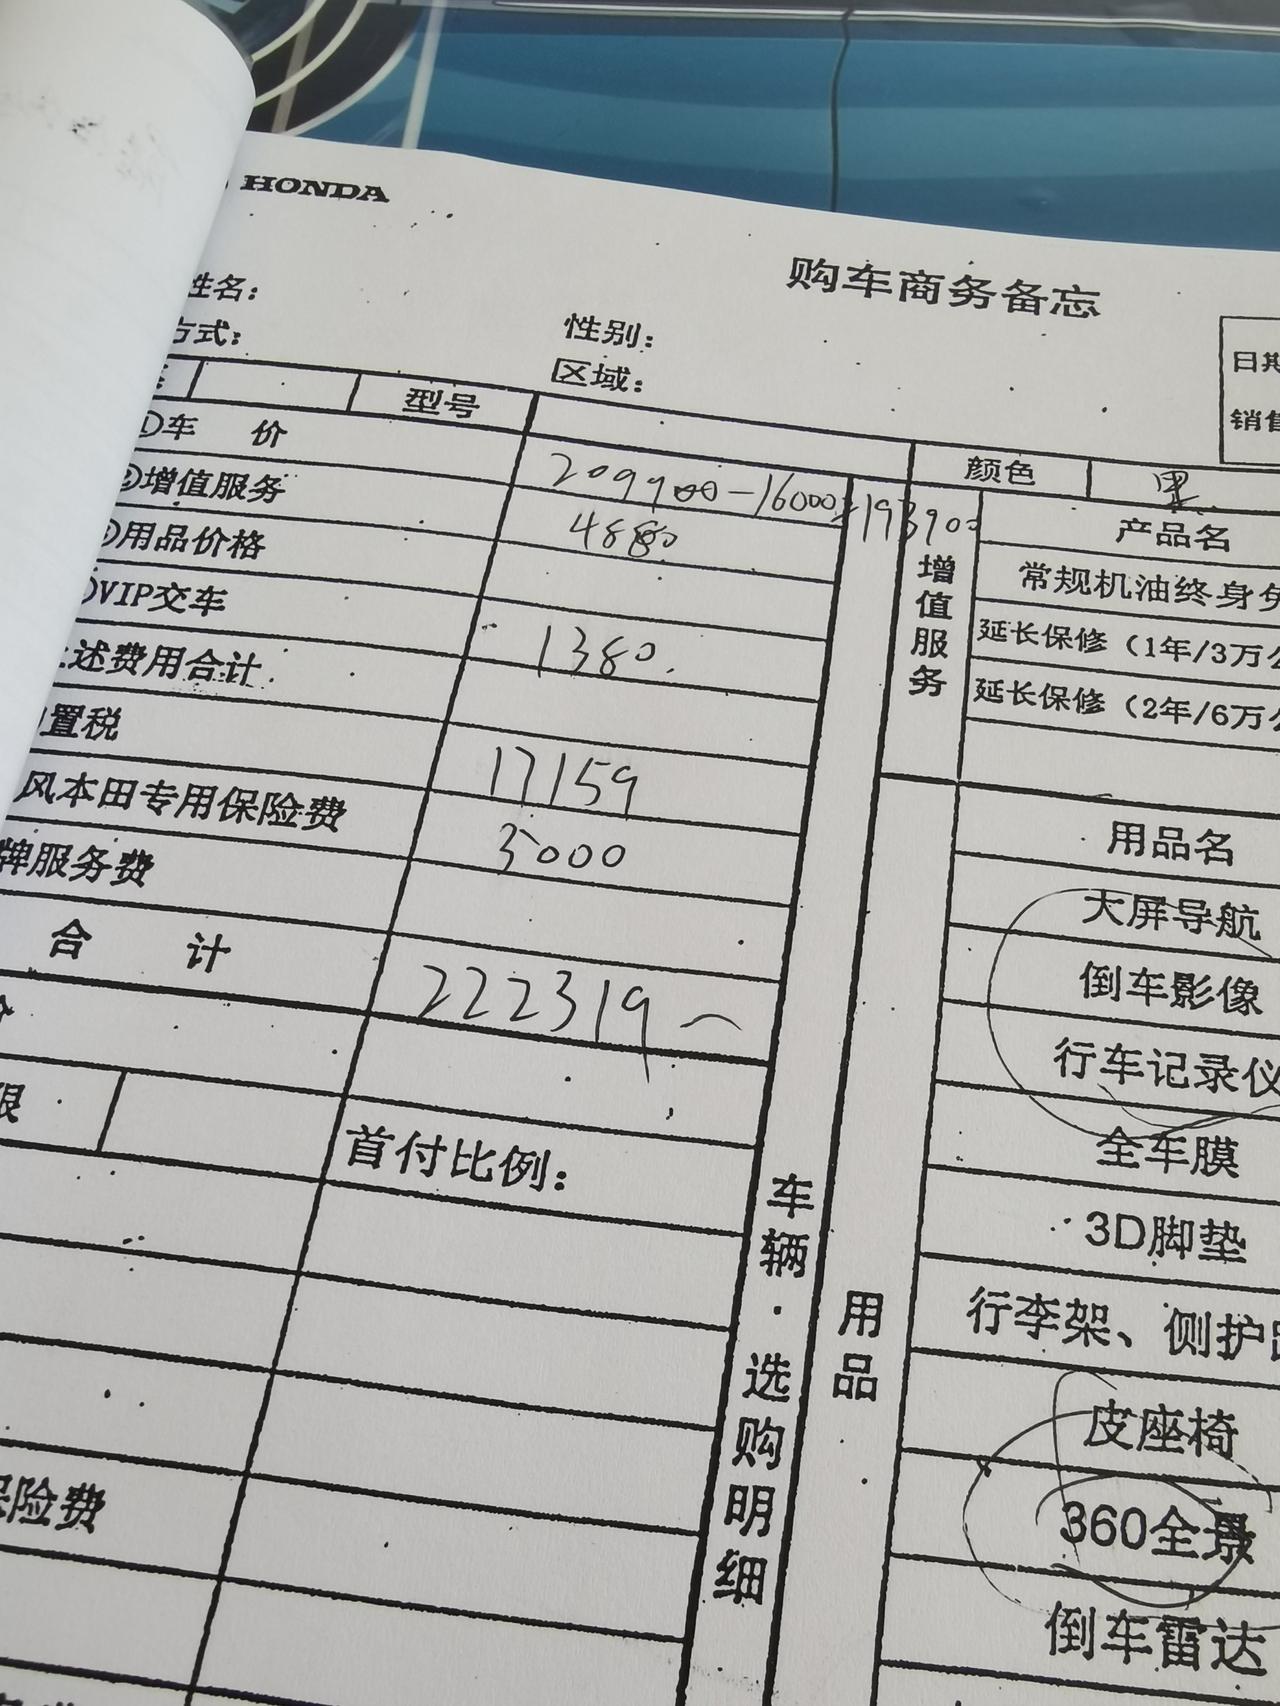 HONDA
购车商务备忘
姓名：
性别：
方式：
区域：
日期
销售
型号
颜色
黑
①车 价
209900-16000=193900
②增值服务
4880
用品价格
VIP交车
1380.
述费用合计
置税
17159
风本田专用保险费
5000
牌服务费
合 计
222319
限
首付比例：
保险费
增值服务
产品名
常规机油终身免
延长保修（1年/3万公
延长保修（2年/6万公
车辆·选购明细
用品
用品名
大屏导航
倒车影像
行车记录仪
全车膜
3D脚垫
行李架、侧护
皮座椅
360全景
倒车雷达